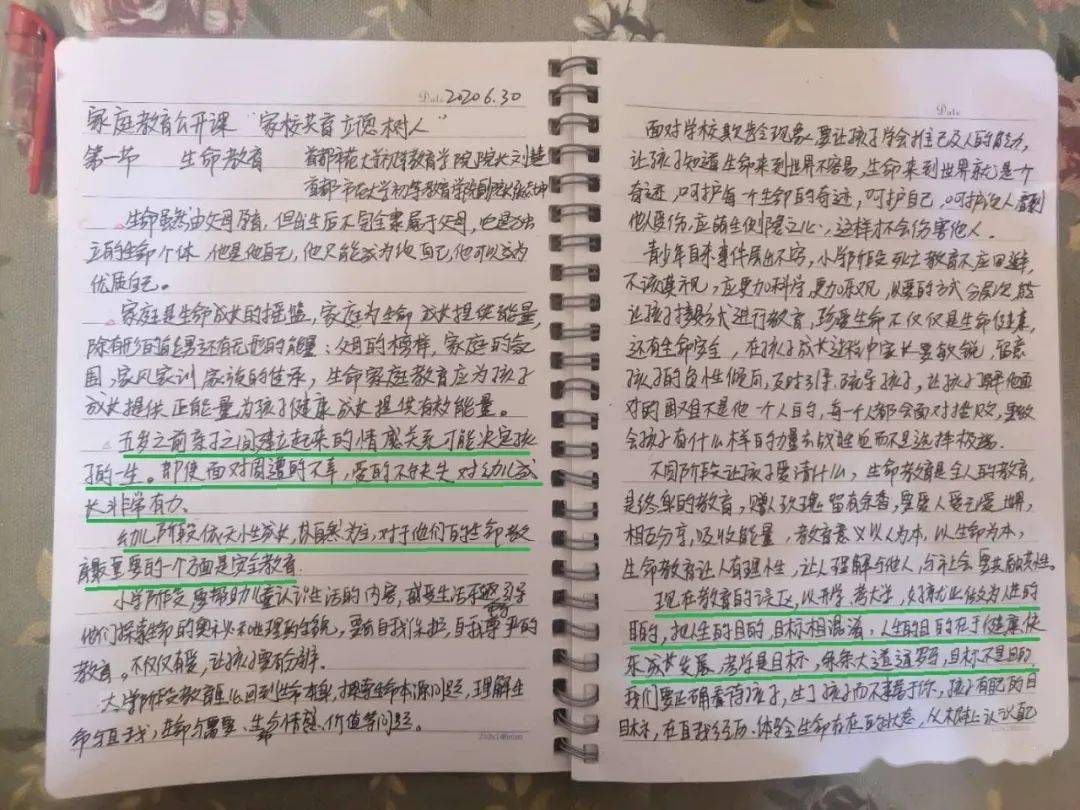 Date 2020 6.30
家庭教育公开课 "家校共育 立德树人"
第一节 生命教育 首都师范大学初等教育学院院长刘慧
首都师范大学初等教育学院
生命虽然由父母孕育,但出生后不完全隶属于父母,也是独
立的生命个体,他是他自己,他只能成为他自己,他可以成为
优质自己。
家庭是生命成长的摇篮,家庭为生命成长提供能量,
除有形的能量还有无形的能量:父母的榜样,家庭的氛
围,家风家训家族的传承,生命家庭教育应为孩子
成长提供正能量为孩子健康成长提供有效能量。
五岁之前亲子之间建立起来的情感关系可能决定孩
子的一生。即使面对周遭的不幸,爱的不缺失对幼儿成
长非常有力。
幼儿阶段依天性成长,以自然为主,对于他们的生命教
育最重要的一个方面是安全教育.
小学阶段要帮助儿童认识生活的内容,
他们探索生命的奥秘和,要有自我保护,自我尊严的
教育。不仅仅有爱,让孩子要有分辨。
大学阶段教育怎么回到生命本身,探索生命本源问题,理解生
命与自我,生命与需要、生命情感、价值等问题。
Date
面对学校欺凌现象,要让孩子学会推己及人的能力,
让孩子知道生命来到世界不容易,生命来到世界就是个
奇迹,呵护每个生命的奇迹,呵护自己,呵护他人看到
他人受伤,应萌生恻隐之心,这样才不会伤害他人.
青少年自杀事件层出不穷,小学阶段死亡教育不应回避,
不该漠视,应更加科学,更加乐观,的方式分层次,能
让孩子接受方式进行教育,珍爱生命不仅仅是生命健康,
还有生命安全,在孩子成长过程中家长要敏锐,留意
孩子的负性倾向,及时引导,疏导孩子,让孩子理解他面
对的困难不是他一个人的,每一个人都会面对挫败,要教
会孩子有什么样的力量去战胜他而不是选择极端.
不同阶段让孩子爱清什么,生命教育是全人的教育,
是终身的教育,赠人玫瑰留有余香,要爱人爱己爱世界,
相互分享,吸收能量,教育意义以人为本,以生命为本,
生命教育让人有理性,让人理解与他人,与社会要共融共性。
现在教育的误区,以升学,考大学,好就业做为人生的
目的,把人生的目的,目标相混淆,人生的目的在于健康快
乐成长发展,考学是目标,条条大道通罗马,目标不是目的,
我们要正确看待孩子,生了孩子而不隶属于你,孩子有自己的目
目标,在自我经历、体验生命存在的状态,从根本上认识自己